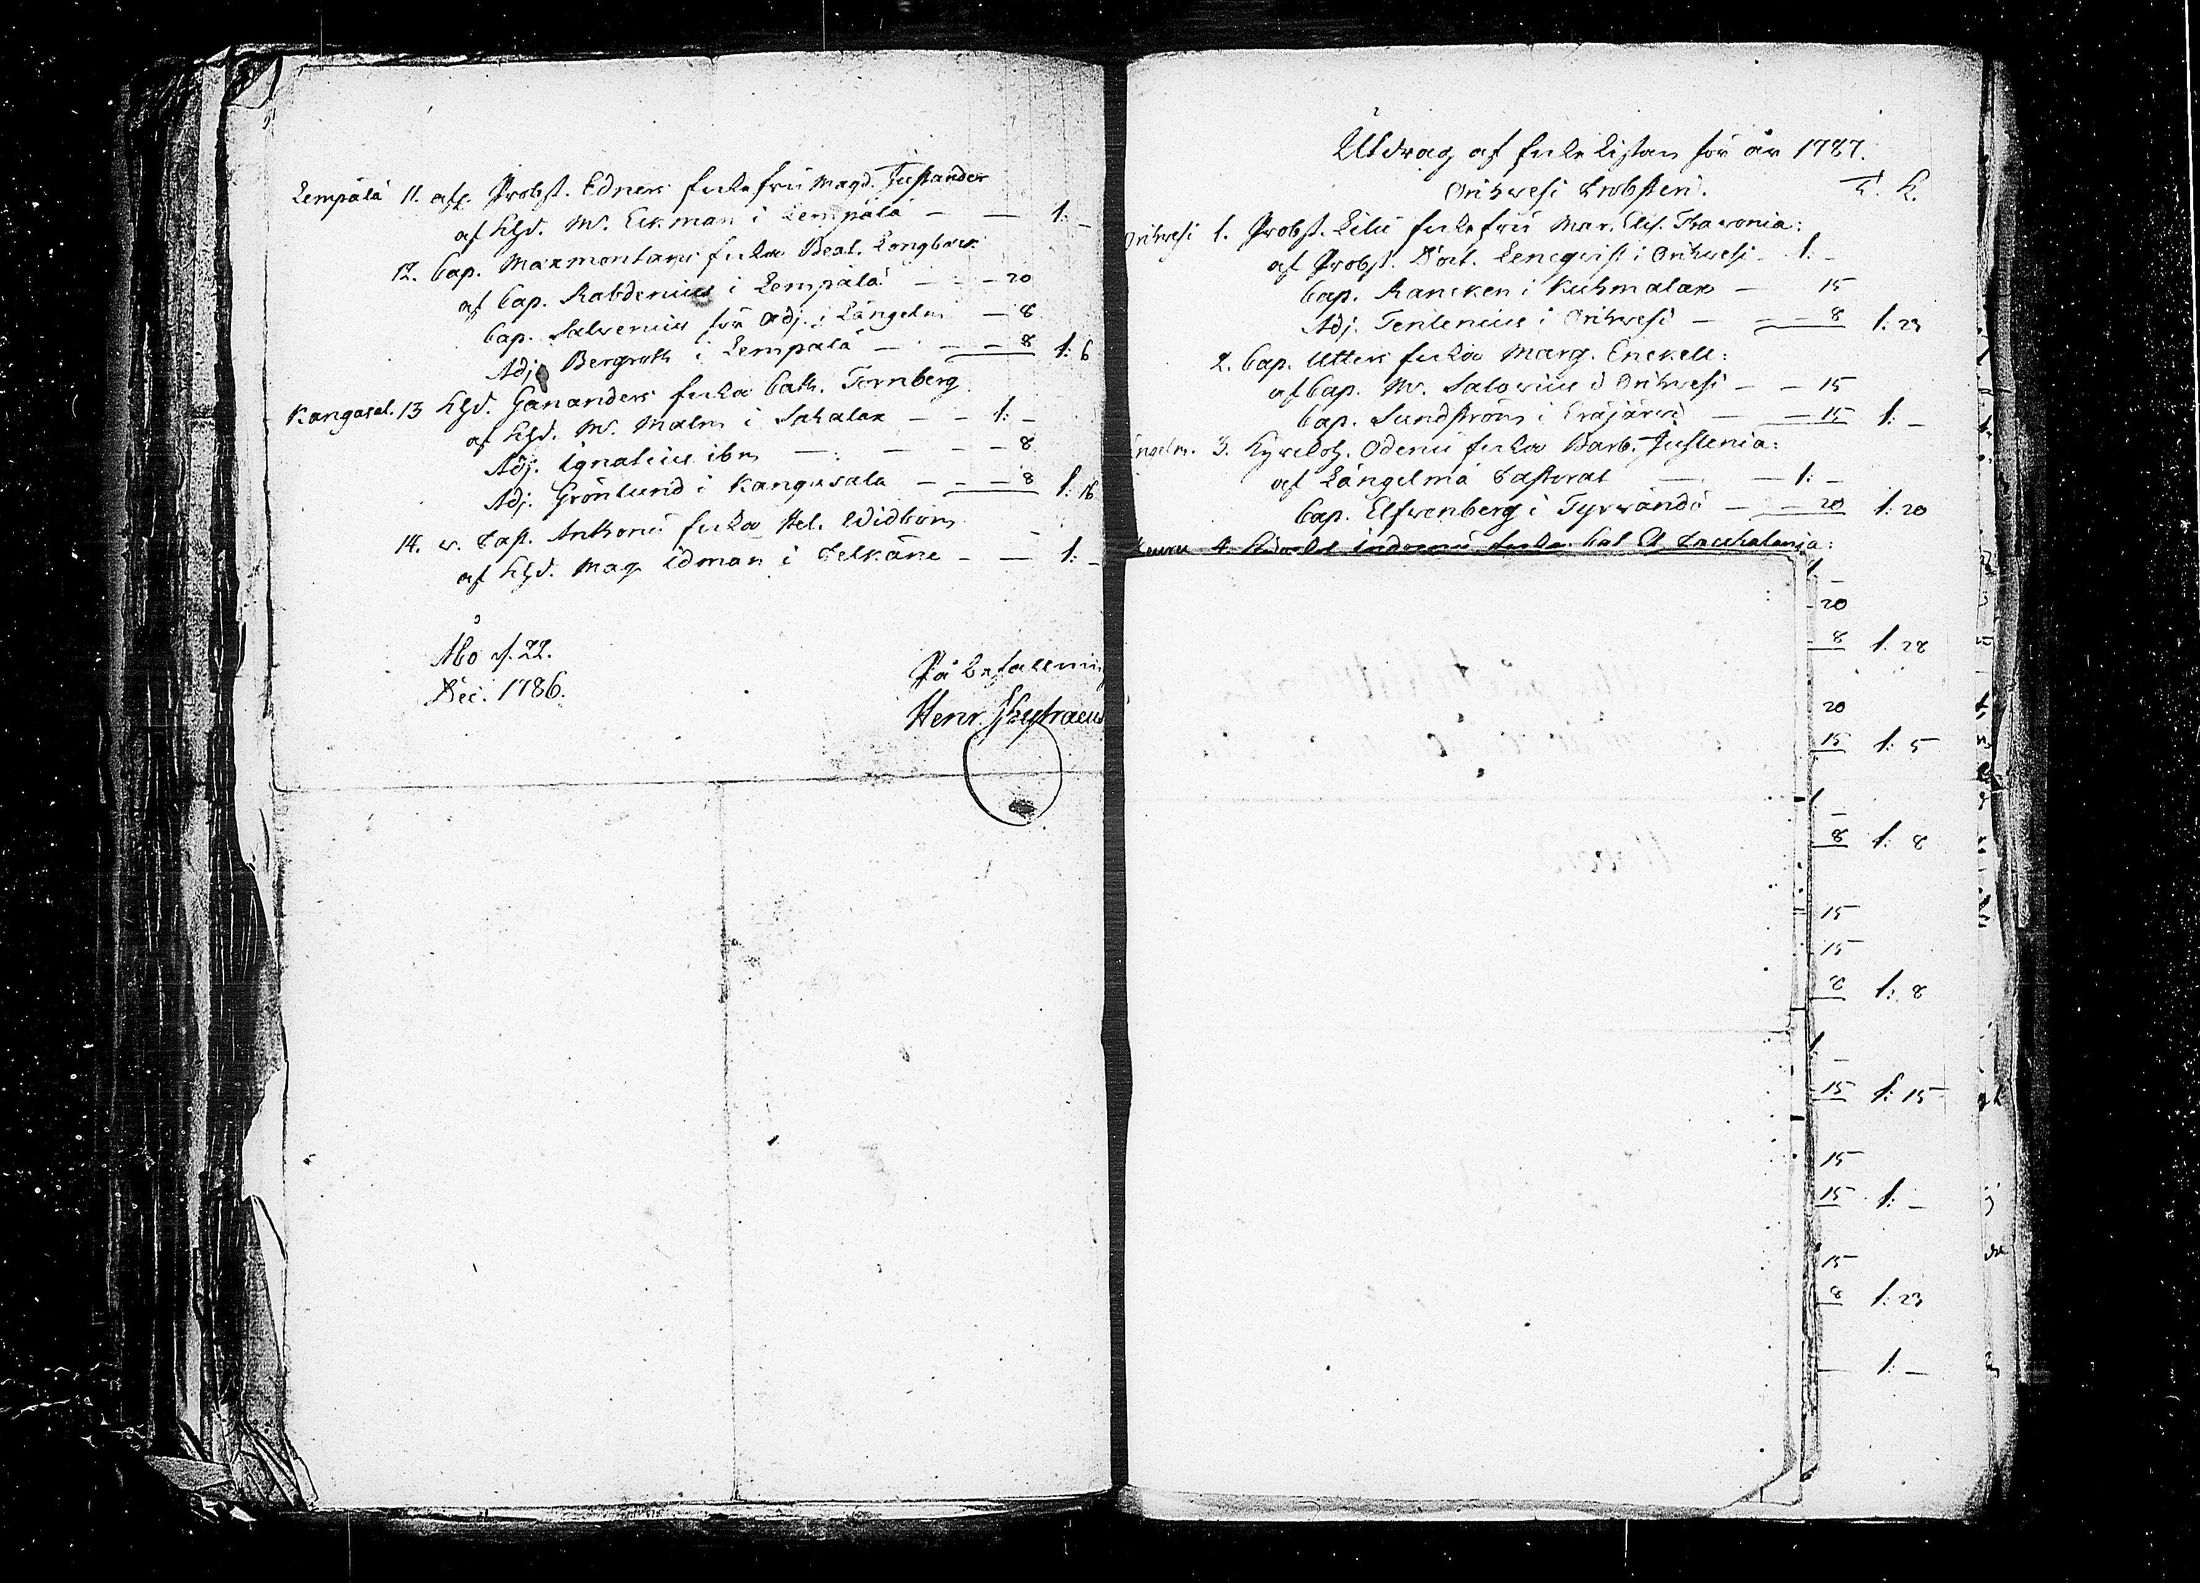 Lempälä 11. afl. Probst. Edners Enkefru Magd. Justander
af Khd. M. Eckman i Lempälä — — 1: —
12. Cap. Marmontans Enka Beat. Longberg
af Cap. Rabdenius i Lempälä — — 20
Cap. Salvenius för Adj. i Längelm. — 8
Adj. Bergroth i Lempälä — — 8 1: 6
Kangasal. 13 Khd. Gananders Enka Cath. Tornberg
af Khd. M. Malm i Sahalax — — 1: —
Adj. Ignatius ibm — — — 8
Adj. Grönlund i Kangasala — — 8 1: 16
14. v. Past. Anthonii Enka Hel. Widbom
af Khd. Mag. Idman i Pelkäne — — 1: —
Åbo d. 22.
Dec. 1786.
På befallning
Henr.
Utdrag af Enke Listan för år 1787.
Orihvesi Probsteri.
Orihvesi 1. Probst. Lilii Enkefru Mar. Elis. Thavonia:
af Probst. Doct. Lencqvist i Orihvesi — 1: —
Cap. Rancken i Kuhmalax — 15
Adj. Tenlenius i Orihvesi — — 8 1: 23
2. Cap. Utters Enka Marg. Enckell:
af Cap. M. Salovius i Orihvesi — — 15
Cap. Sundström i Eräjärvi — — 15 1: —
ngelm. 3. Kyrckoh. Odenii Enka Barb. Justenia:
af Längelmä Pastorat — 1: —
Cap. Elfvenberg i Tyrvändö — — 20 1: 20
4. Enka
1 —
20
8 1: 28
20
15 1: 5
1 —
8 1: 8
15
15
8 1: 8
1 —
15 1: 15
15
15 1: —
15
8 1: 23
— 1: —